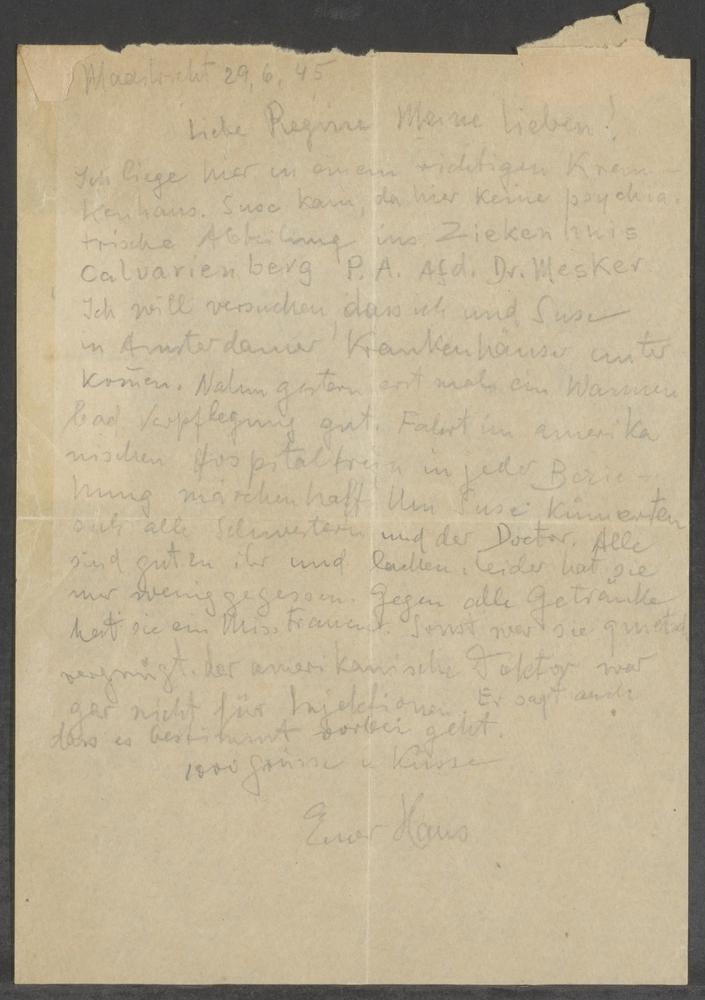 Maastricht 29, 6. 45
Liebe Regina Meine Lieben!
Ich liege hier in einem richtigen Kran-
kenhaus. Suse kam, da hier keine psychia-
trische Abteilung ins Ziekenhuis
Calvarienberg P. A. Afd. Dr. Mesker
Ich will versuchen, dass ich und Suse
in Amsterdamer Krankenhäuser unter
komen. Nahm gestern erst mals ein Warmen
bad Verpflegung gut. Fahrt im amerika
nischen Hospitaltrain in jeder Bezie-
hung märchenhaft Um Suse kümerten
sich alle Schwestern und der Doctor. Alle
sind gut zu ihr und lachen. Leider hat sie
nur wenig gegessen. Gegen alle Getränke
hat sie ein Misstrauen. Sonst war sie quietsch
vergnügt. Der amerikanische Doktor war
gar nicht für Injektionen. Er sagt auch
dass es bestimmt vorbei geht.
1000 Grüsse u Küsse
Euer Hans